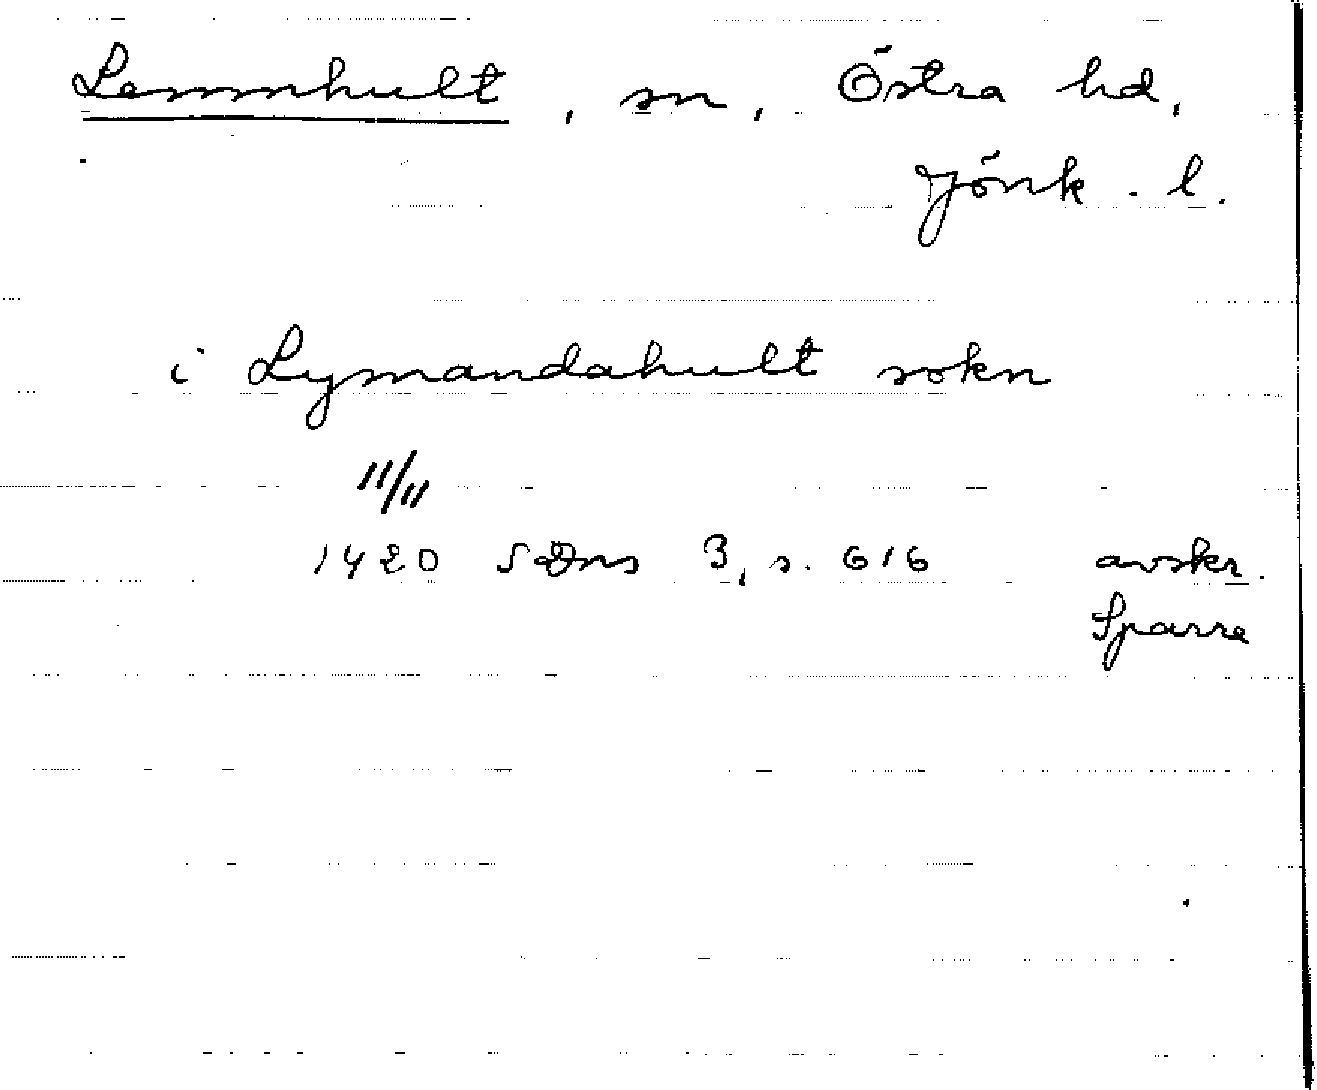 Lemnhult, sn, Östra hd,
Jönk. l.
i Lymandahult sokn
11/11
1420 SDns 3, s. 616 avskr.
Sparre